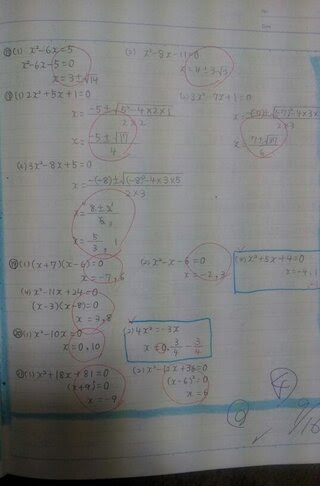 ⑱(1) x²-6x=5
x²-6x-5=0
x=3±√14
(2) x²-8x-11=0
x=4±3√3
(1) 2x²+5x+1=0
x= -5±√5²-4×2×1 / 2×2
x= -5±√17 / 4
3x²-7x+1=0
x= -(-7)±√(-7)²-4×3×1 / 2×3
x= 7±√37
3x²-8x+5=0
x= -(-8)±√(-8)²-4×3×5 / 2×3
x= 8±2 / 6
x= 5/3, 1
⑲(1) (x+7)(x-6)=0
x=-7, 6
(2) x²-x-6=0
x=-2, 3
x²+5x+4=0
x=-4, 1
(4) x²-11x+24=0
(x-3)(x-8)=0
x=3, 8
⑳(1) x²-10x=0
x=0, 10
(2) 4x²=-3x
x=0, 3/4 -3/4
(1) x²+18x+81=0
(x+9)²=0
x=-9
(2) x²-12x+36=0
(x-6)²=0
x=6